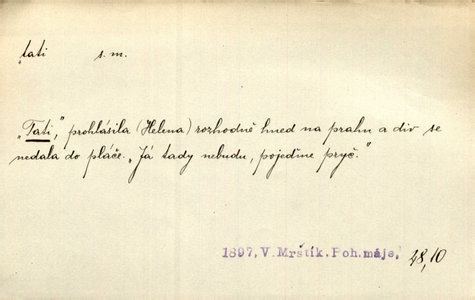 tati s. m.
„Tati,” prohlásila (Helena) rozhodně hned na prahu a div se
nedala do pláče. „Já tady nebudu, pojeďme pryč.”
1897, V. Mrštík. Poh. máje, 48,10